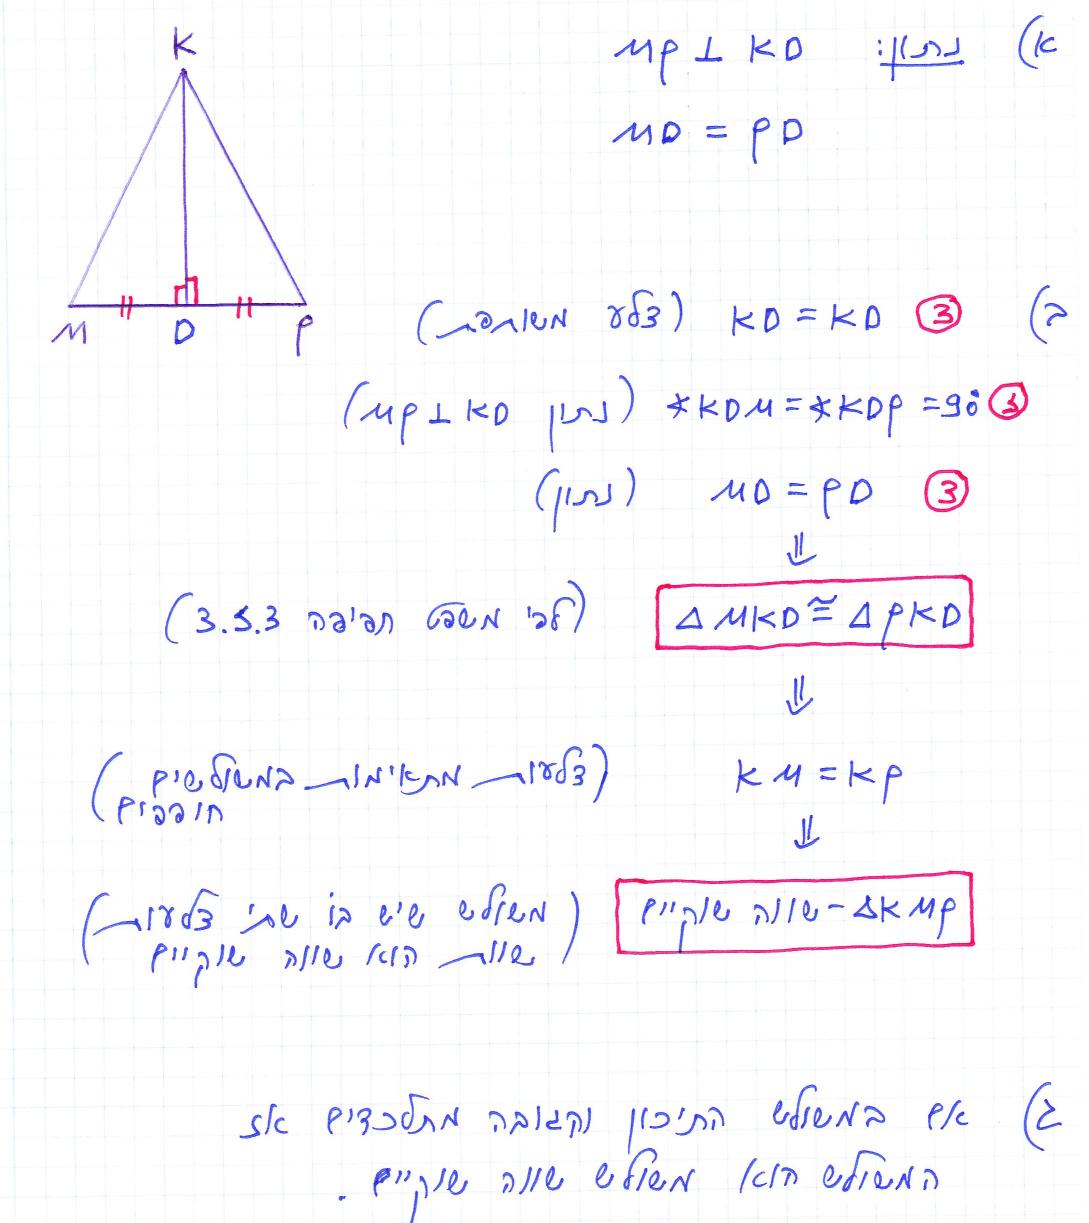 K
M D P
א) נתון: MP ⊥ KD
MD = PD
ב) צ KD = KD (צלע משותפת)
ז ∢KDM = ∢KDP = 90° (נתון MP ⊥ KD)
צ MD = PD (נתון)
⇓
△MKD ≅ △PKD (לפי משפט חפיפה צ.ז.צ)
⇓
KM = KP (צלעות מתאימות במשולשים
חופפים)
⇓
△KMP - שווה שוקיים (משולש שיש בו שתי צלעות
שוות הוא שווה שוקיים)
ג) אם במשולש התיכון והגובה מתלכדים אז
המשולש הוא משולש שווה שוקיים.